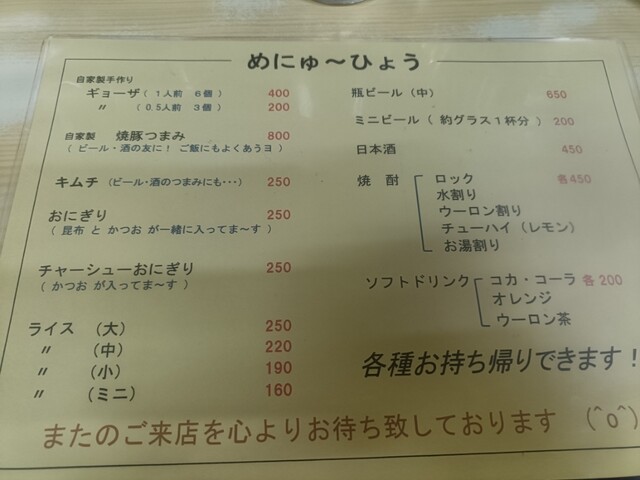 めにゅ～ひょう
自家製手作り
ギョーザ（１人前 ６個） 400
〃 （0.5人前 ３個） 200
自家製 焼豚つまみ 800
（ ビール・酒の友に！ ご飯にもよくあうヨ ）
キムチ （ビール・酒のつまみにも・・・） 250
おにぎり 250
（ 昆布 と かつお が一緒に入ってま～す ）
チャーシューおにぎり 250
（ かつお が入ってま～す ）
ライス （大） 250
〃 （中） 220
〃 （小） 190
〃 （ミニ） 160
瓶ビール（中） 650
ミニビール（ 約グラス１杯分 ） 200
日本酒 450
焼 酎 ロック 各450
水割り
ウーロン割り
チューハイ（レモン）
お湯割り
ソフトドリンク コカ・コーラ 各200
オレンジ
ウーロン茶
各種お持ち帰りできます！
またのご来店を心よりお待ち致しております （^o^）